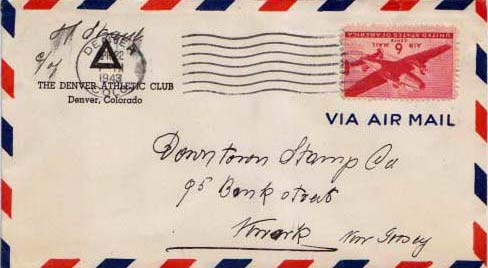 DENVER
1943
COLO.
THE DENVER ATHLETIC CLUB
Denver, Colorado
UNITED STATES OF AMERICA
AIR MAIL
6 CENTS
VIA AIR MAIL
Downtown Stamp Co
95 Bank street
Newark New Jersey